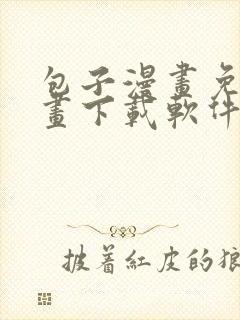 包子漫畫免
畫下載軟件
披着紅皮的狼